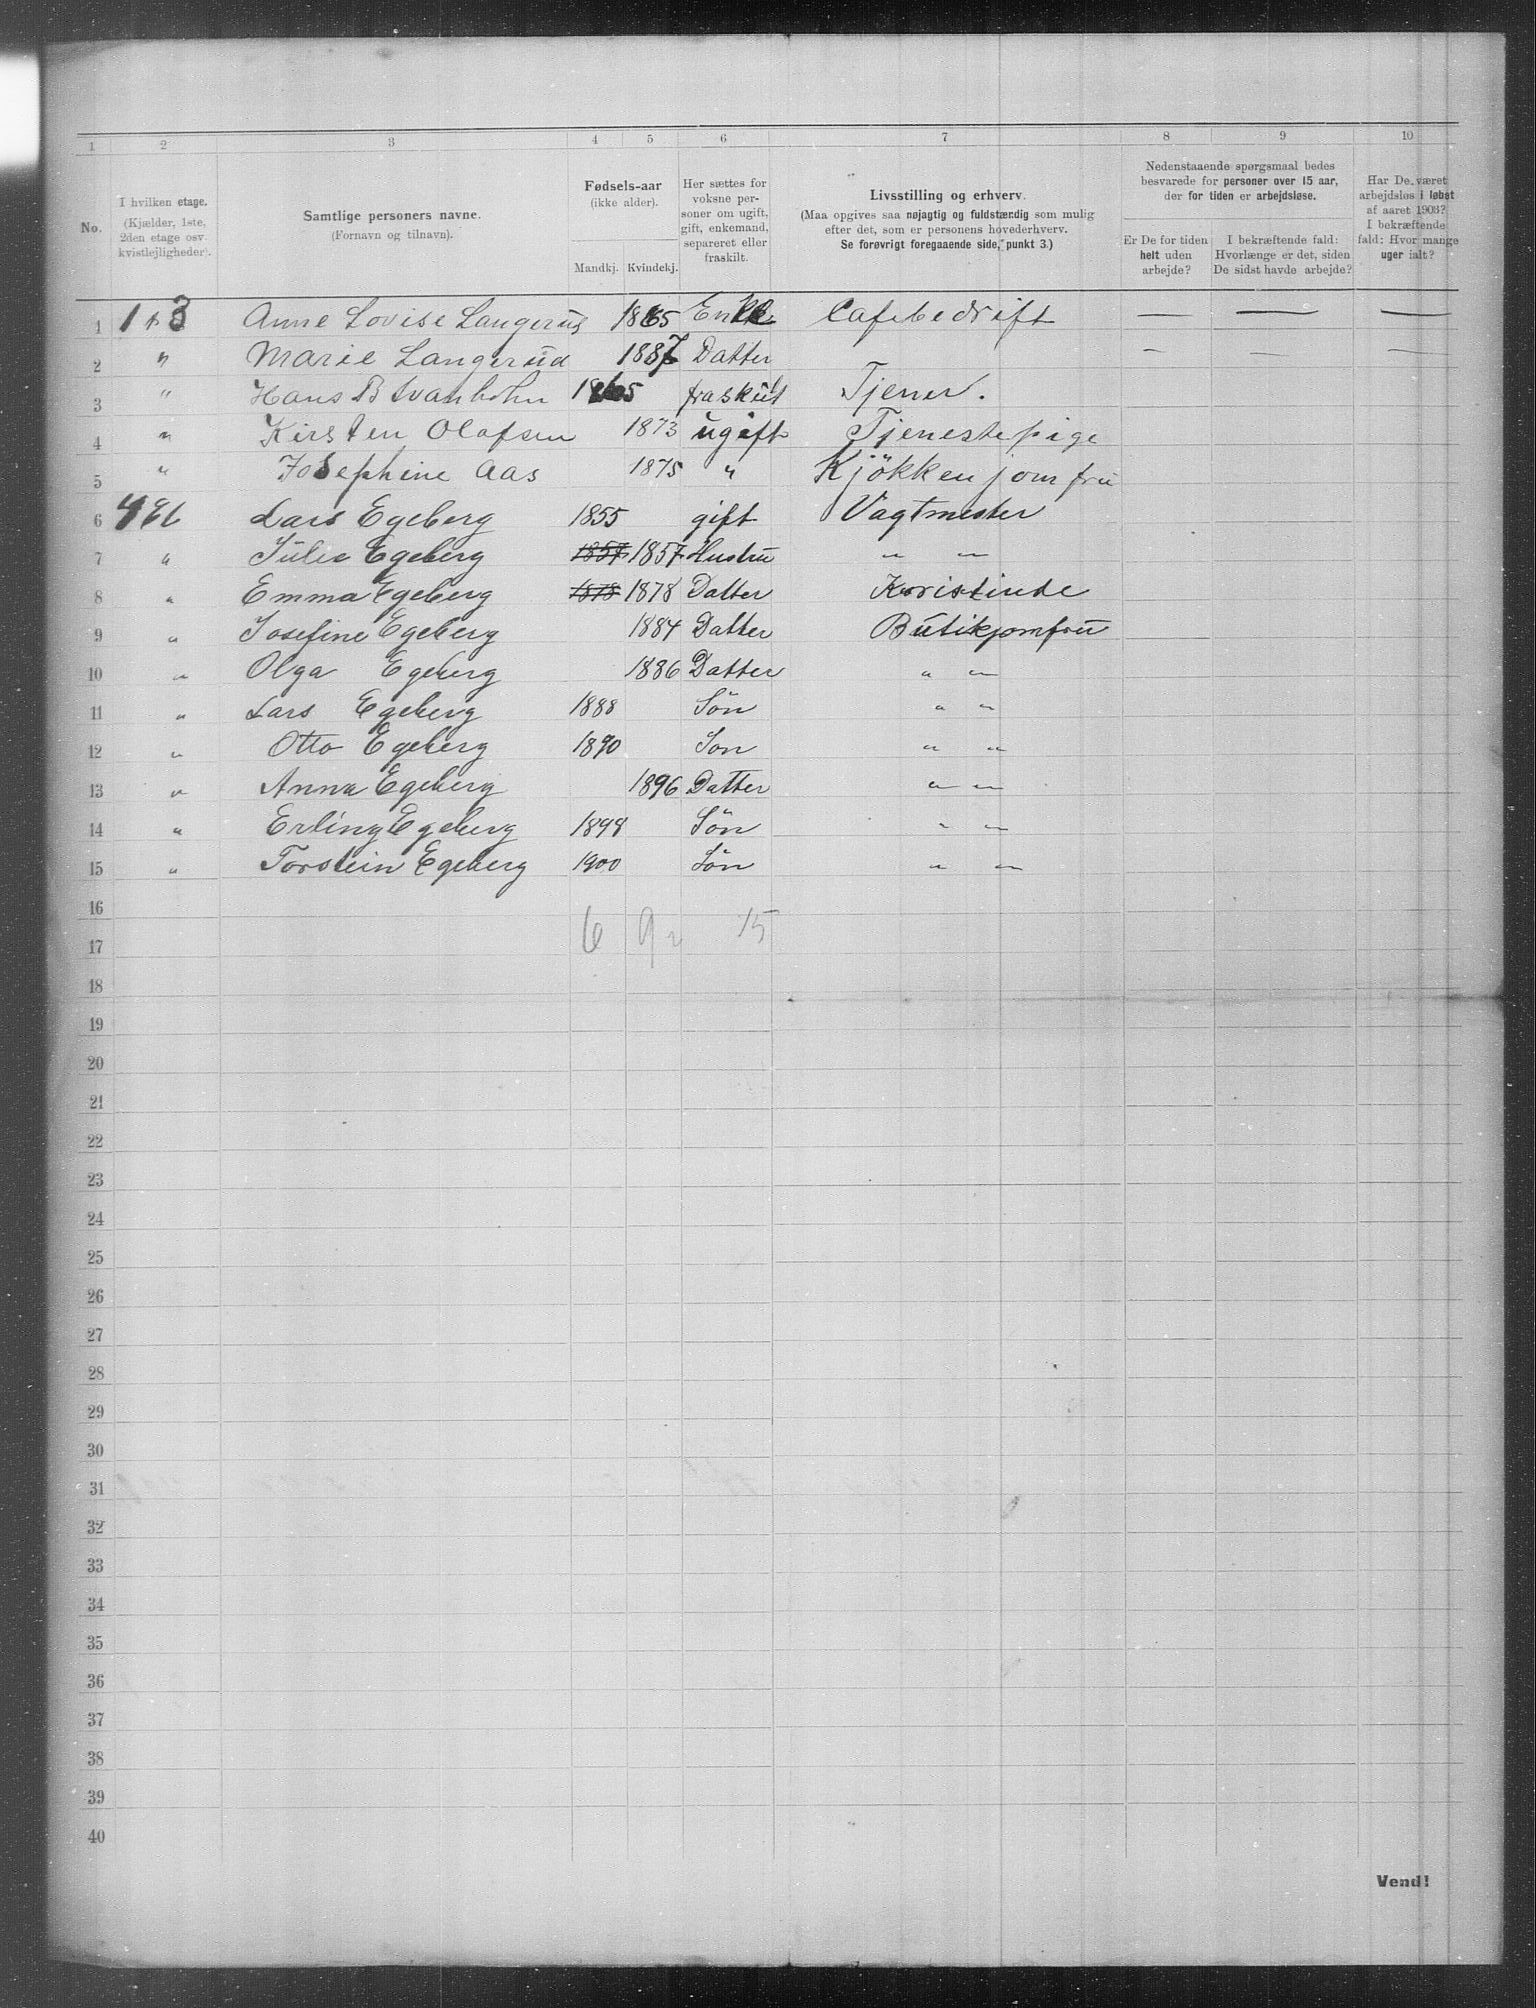 1 2 3 4 5 6 7 8 9 10
No.
I hvilken etage.
(Kjælder, 1ste,
2den etage osv.
kvistlejligheder).
Samtlige personers navne.
(Fornavn og tilnavn).
Fødsels-aar
(ikke alder).
Mandkj. Kvindekj.
Her sættes for
voksne per-
soner om ugift,
gift, enkemand,
separeret eller
fraskilt.
Livsstilling og erhverv.
(Maa opgives saa nøjagtig og fuldstændig som mulig
efter det, som er personens hovederhverv.
Se forøvrigt foregaaende side, punkt 3.)
Nedenstaaende spørgsmaal bedes
besvarede for personer over 15 aar,
der for tiden er arbejdsløse.
Er De for tiden
helt uden
arbejde?
I bekræftende fald:
Hvorlænge er det, siden
De sidst havde arbejde?
Har De været
arbejdsløs i løbet
af aaret 1903?
I bekræftende
fald: Hvor mange
uger ialt?
1 Anne Lovise Langerud 1865 Enke Cafebedrift — — —
2 " Marie Langerud 1887 Datter — — —
3 " Hans B 1865 fraskilt Tjener.
4 " Kirsten Olafsen 1873 ugift Tjenestepige
5 " Josephine Aas 1875 " Kjökkenjomfru
6 Lars Egeberg 1855 gift Vagtmester
7 " Julie Egeberg 1857 1857 Hustru " "
8 " Emma Egeberg 1878 1878 Datter Koristinde
9 " Josefine Egeberg 1884 Datter Butikjomfru
10 " Olga Egeberg 1886 Datter " "
11 " Lars Egeberg 1888 Sön " "
12 " Otto Egeberg 1890 Son " "
13 " Anna Egeberg 1896 Datter " "
14 " Erling Egeberg 1898 Sön " "
15 " Torstein Egeberg 1900 Sön " "
16
6 9 15
17
18
19
20
21
22
23
24
25
26
27
28
29
30
31
32
33
34
35
36
37
38
39
40
Vend!